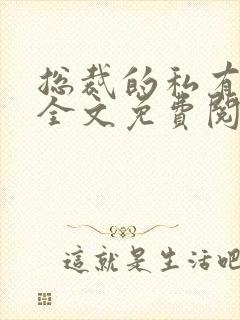 总裁的私有
全文免費閱
這就是生活吧